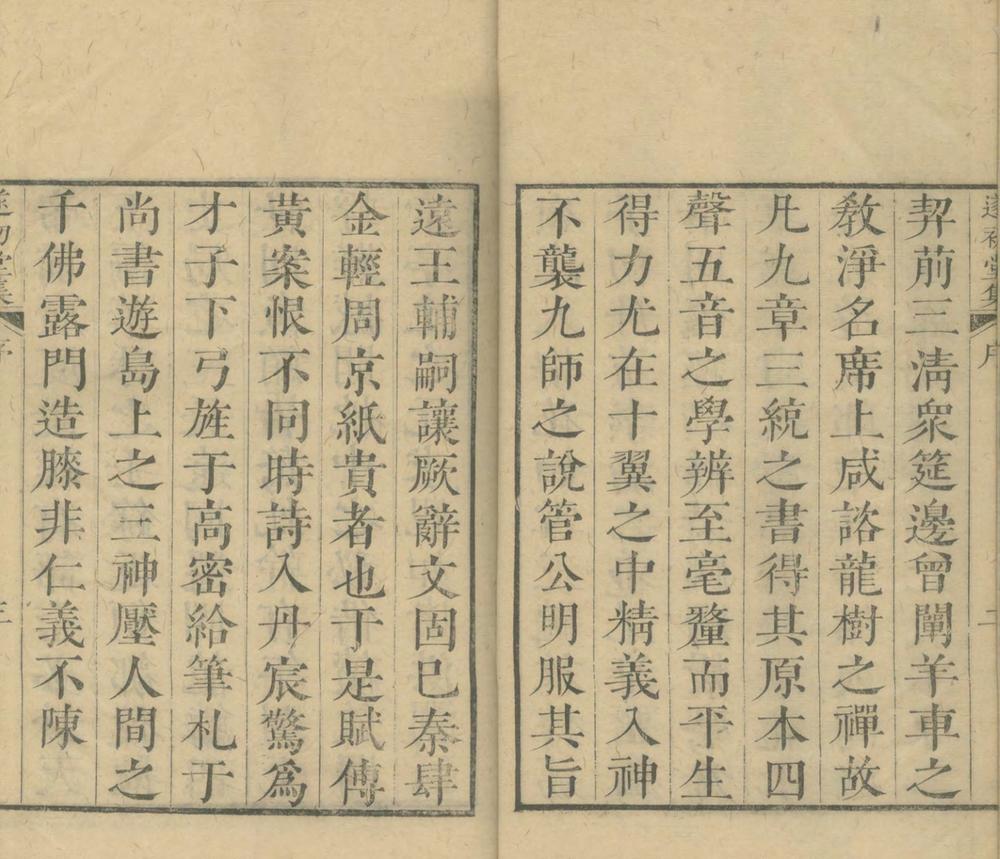 遂初堂集 序 二
契前三清衆筵邊曾闡羊車之
敎淨名席上咸諮龍樹之禪故
凡九章三統之書得其原本四
聲五音之學辨至毫釐而平生
得力尤在十翼之中精義入神
不襲九師之說管公明服其旨
遠王輔嗣讓厥辭文固巳秦肆
金輕周京紙貴者也于是賦傳
黃案恨不同時詩入丹宸驚爲
才子下弓旌于高密給筆札于
尚書遊島上之三神壓人間之
千佛露門造膝非仁義不陳
遂初堂集 序 三